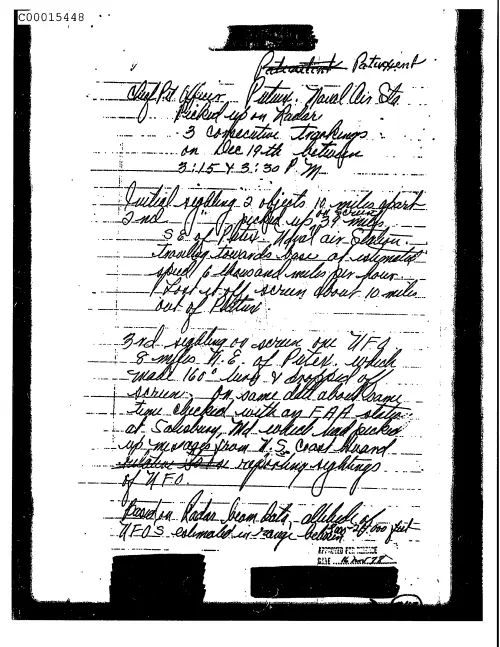 C00015448
Patuxent
Chief P.I. Officer Patuxn. Naval Air Sta.
Picked up on Radar
3 consecutive trackings
on Dec 19th between
3:15 & 3:30 P.M
Initial sighting 2 objects 10 miles apart
2nd " picked up on screen 39 miles
S.E. of Patux. Naval air Station.
traveling towards base at estimated
speed 6 thousand miles per hour.
Lost it off screen about 10 miles
out of
3rd sighting on screen one UFO
8 miles N.E. of Patux. which
made 160° turn & dropped off
screen. On same date about same
time checked with an FAA station
at Salisbury, Md which had picked
up message from U.S. Coast Guard
reporting sightings
of UFO.
Based on Radar beam data, altitude of
UFOS estimated in range between feet
APPROVED FOR RELEASE
DATE 78